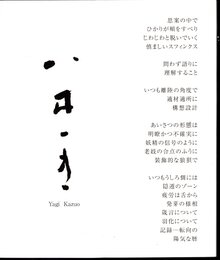 思案の中で
ひかりが頬をすべり
じわじわと脱いでいく
慎ましいスフィンクス
問わず語りに
理解すること
いつも離陸の角度で
適材適所に
構想設計
あいさつの形態は
明瞭かつ不確実に
妖精の信号のように
老妓の合点のふうに
装飾的な狼狽で
いつもうしろ側には
隠遁のゾーン
疲労は舌から
発芽の様相
箴言について
羽化について
記録―転向の
陽気な暦
Yagi Kazuo